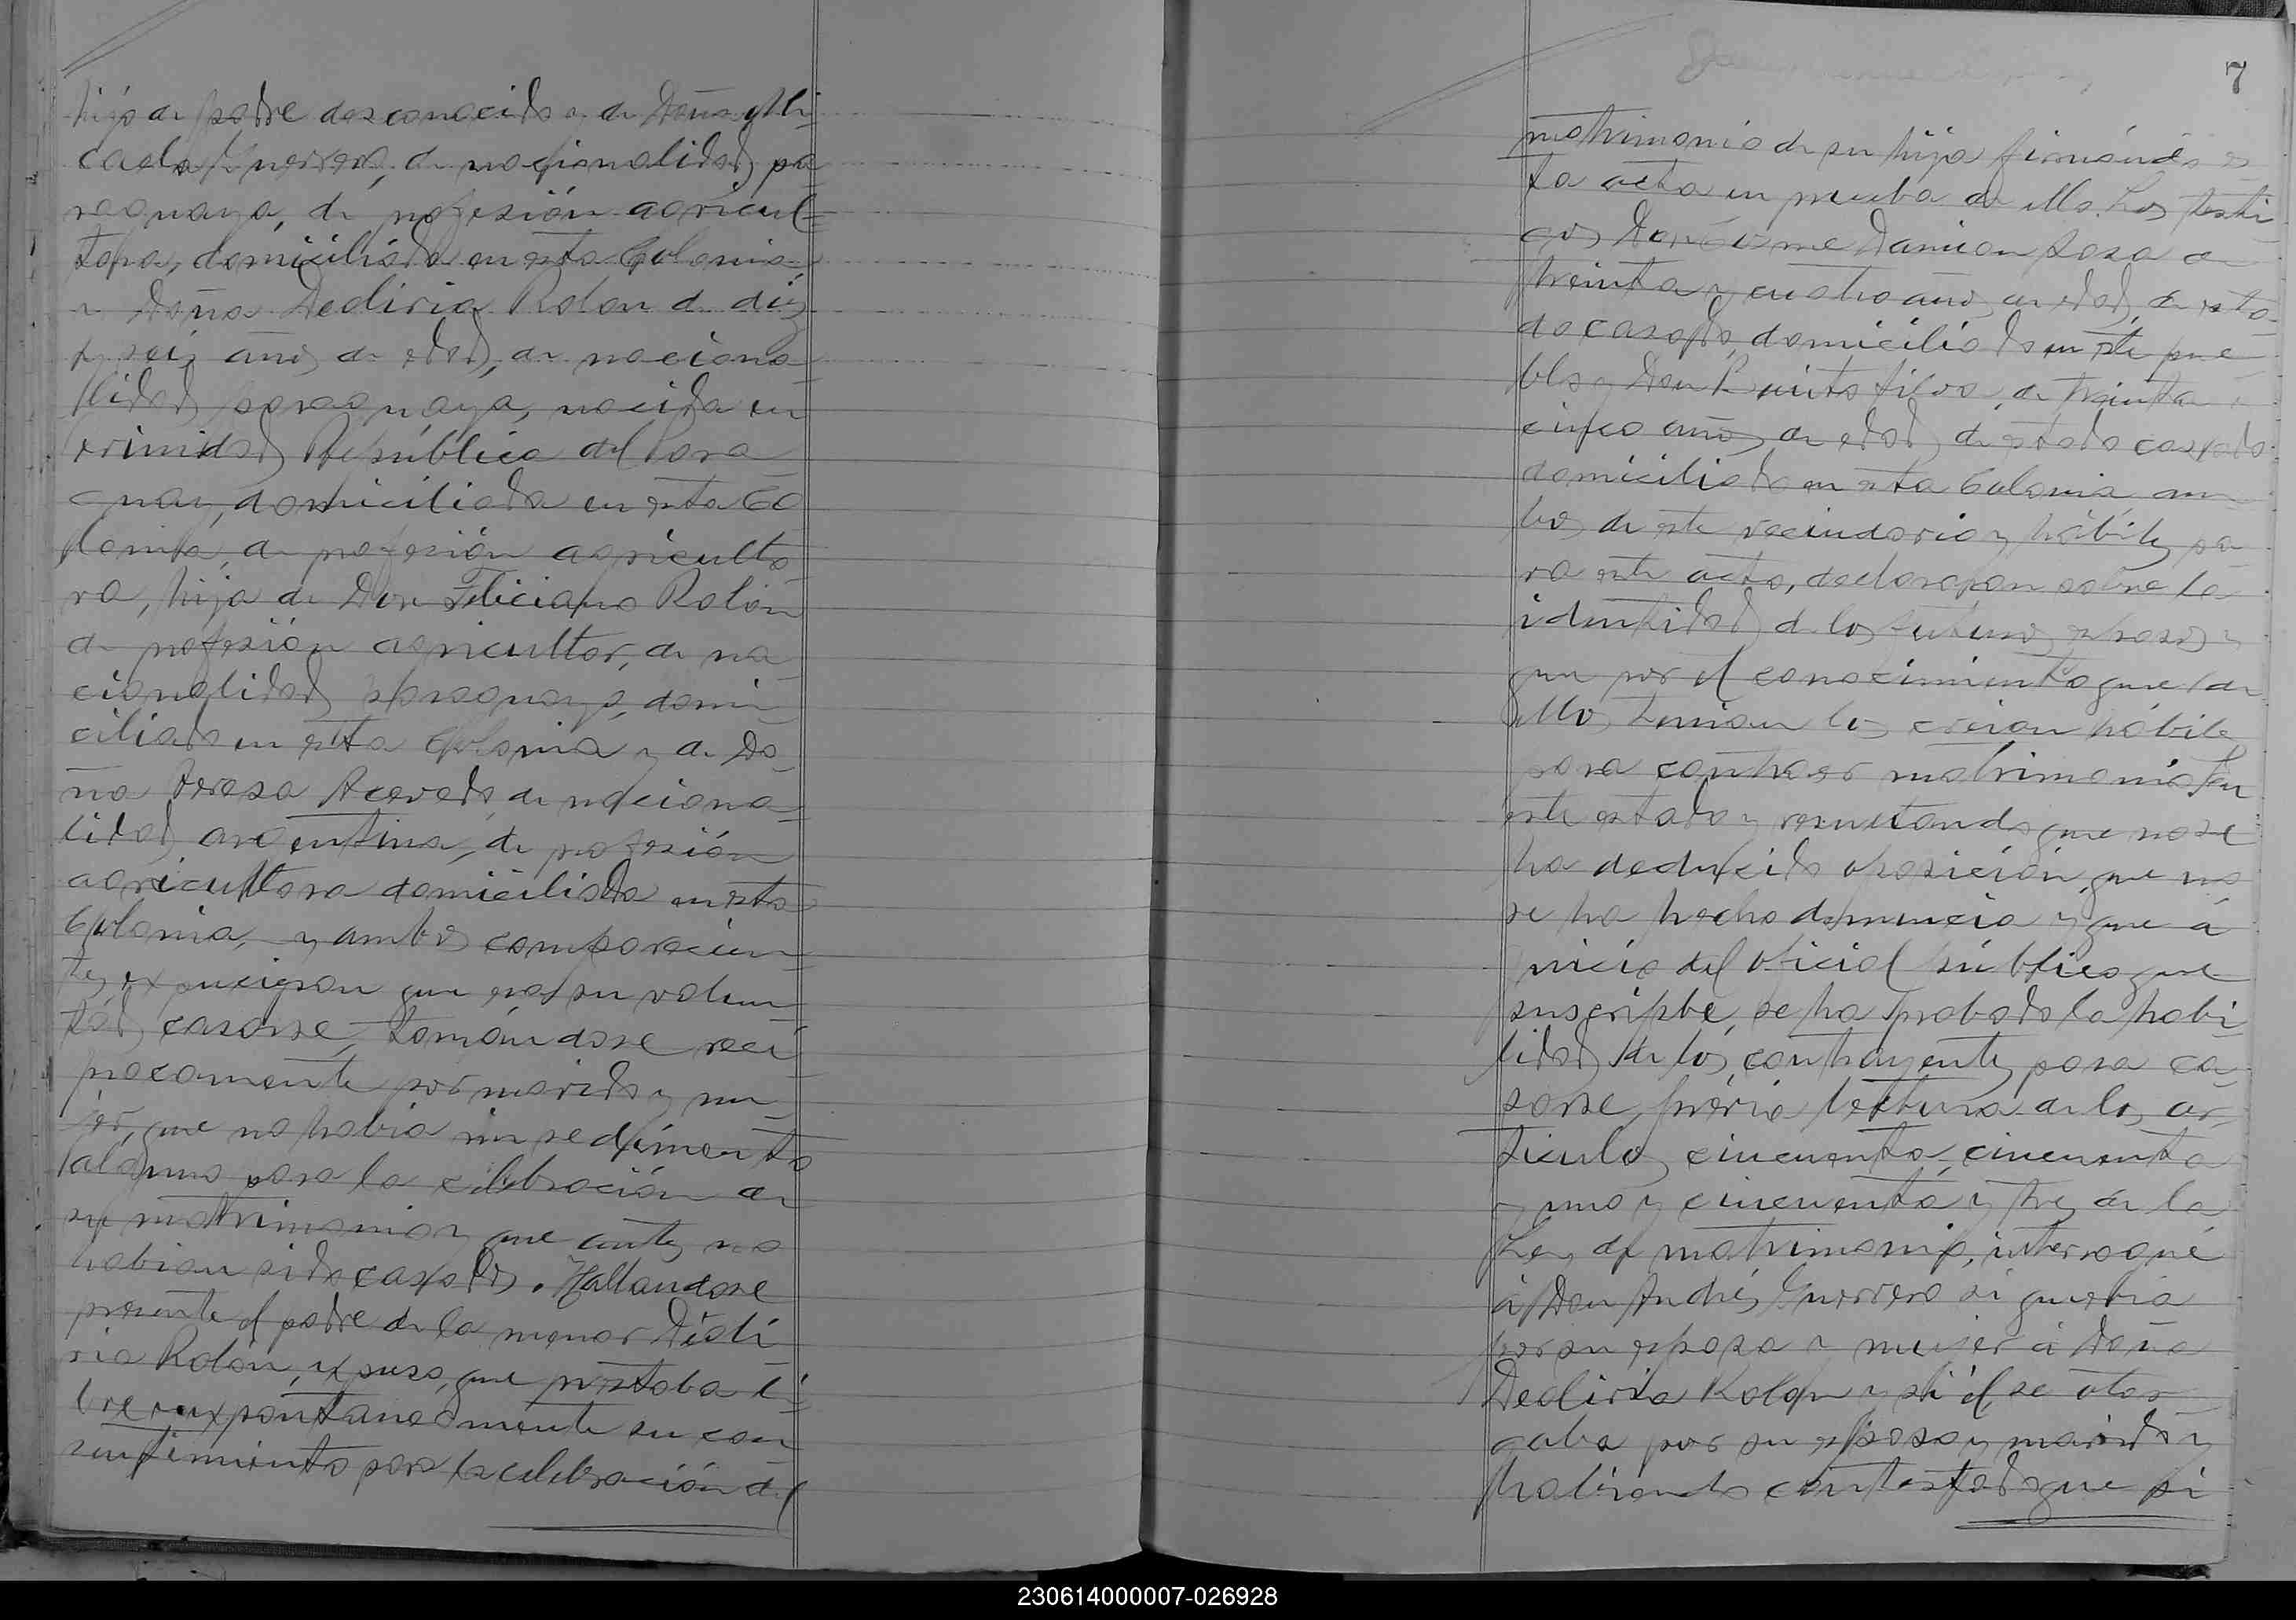 hijo de padre desconocido y de Doña Mi-
caela Guerrero, de nacionalidad pa-
raguaya, de profesión agricul-
tora, domiciliada en esta Colonia,
y Doña Deoliria Rolon de diez
y seis años de edad, de naciona-
lidad paraguaya, nacida en
Trinidad República del Para-
guay, domiciliada en esta Co-
lonia, de profesión agriculto-
ra, hija de Don Feliciano Rolón
de profesión agricultor, de na-
cionalidad paraguayo, domi-
ciliado en esta Colonia y de Do-
ña Teresa Acevedo, de naciona-
lidad argentina, de profesión
agricultora domiciliada en esta
Colonia, y ambos comparecien-
tes expucieron que era su volun-
tád casarse, tomándose recí-
procamente por marido y mu-
jer, que no habia impedimento
alguno para la celebración de
su matrimonio y que antes no
habian sido casados. Hallandose
presente el padre de la menor Dioli-
ria Rolón, expuso, que prestaba li-
bre y expontaneamente su con-
sentimiento para la celebración del
7
matrimonio de su hija firmándo es-
ta acta en prueba de ello. Los testi-
gos Don Cosme Damian Sosa de
treinta y cuatro años de edad, de esta-
do casado, domiciliado en este pue-
blo y Don silva, de treinta
cinco años de edad, de estado casado
domiciliado en esta Colonia, am-
bos de este vecindario y hábiles pa-
ra este acto, declararon sobre la
identidad de los futuros esposos y
que por el conocimiento que de
ellos tenian los creian hábiles
para contraer matrimonio. En
este estado y resultando que no se
ha deducido oposición, que no
se ha hecho denuncia y que á
juicio del oficial público que
suscribe, se ha probado la habi-
lidad de los contrayentes para ca-
sarse, prévia lectura de los ar-
ticulos cincuenta, cincuenta
y uno y cincuenta y tres de la
Ley de matrimonio, interrogué
á Don Andrés Guerrero si queria
por su esposa y mujer á Doña
Deoliria Rolon y si él, se otor-
gaba por su esposo y marido y
habiendo contestado que si
230614000007-026928